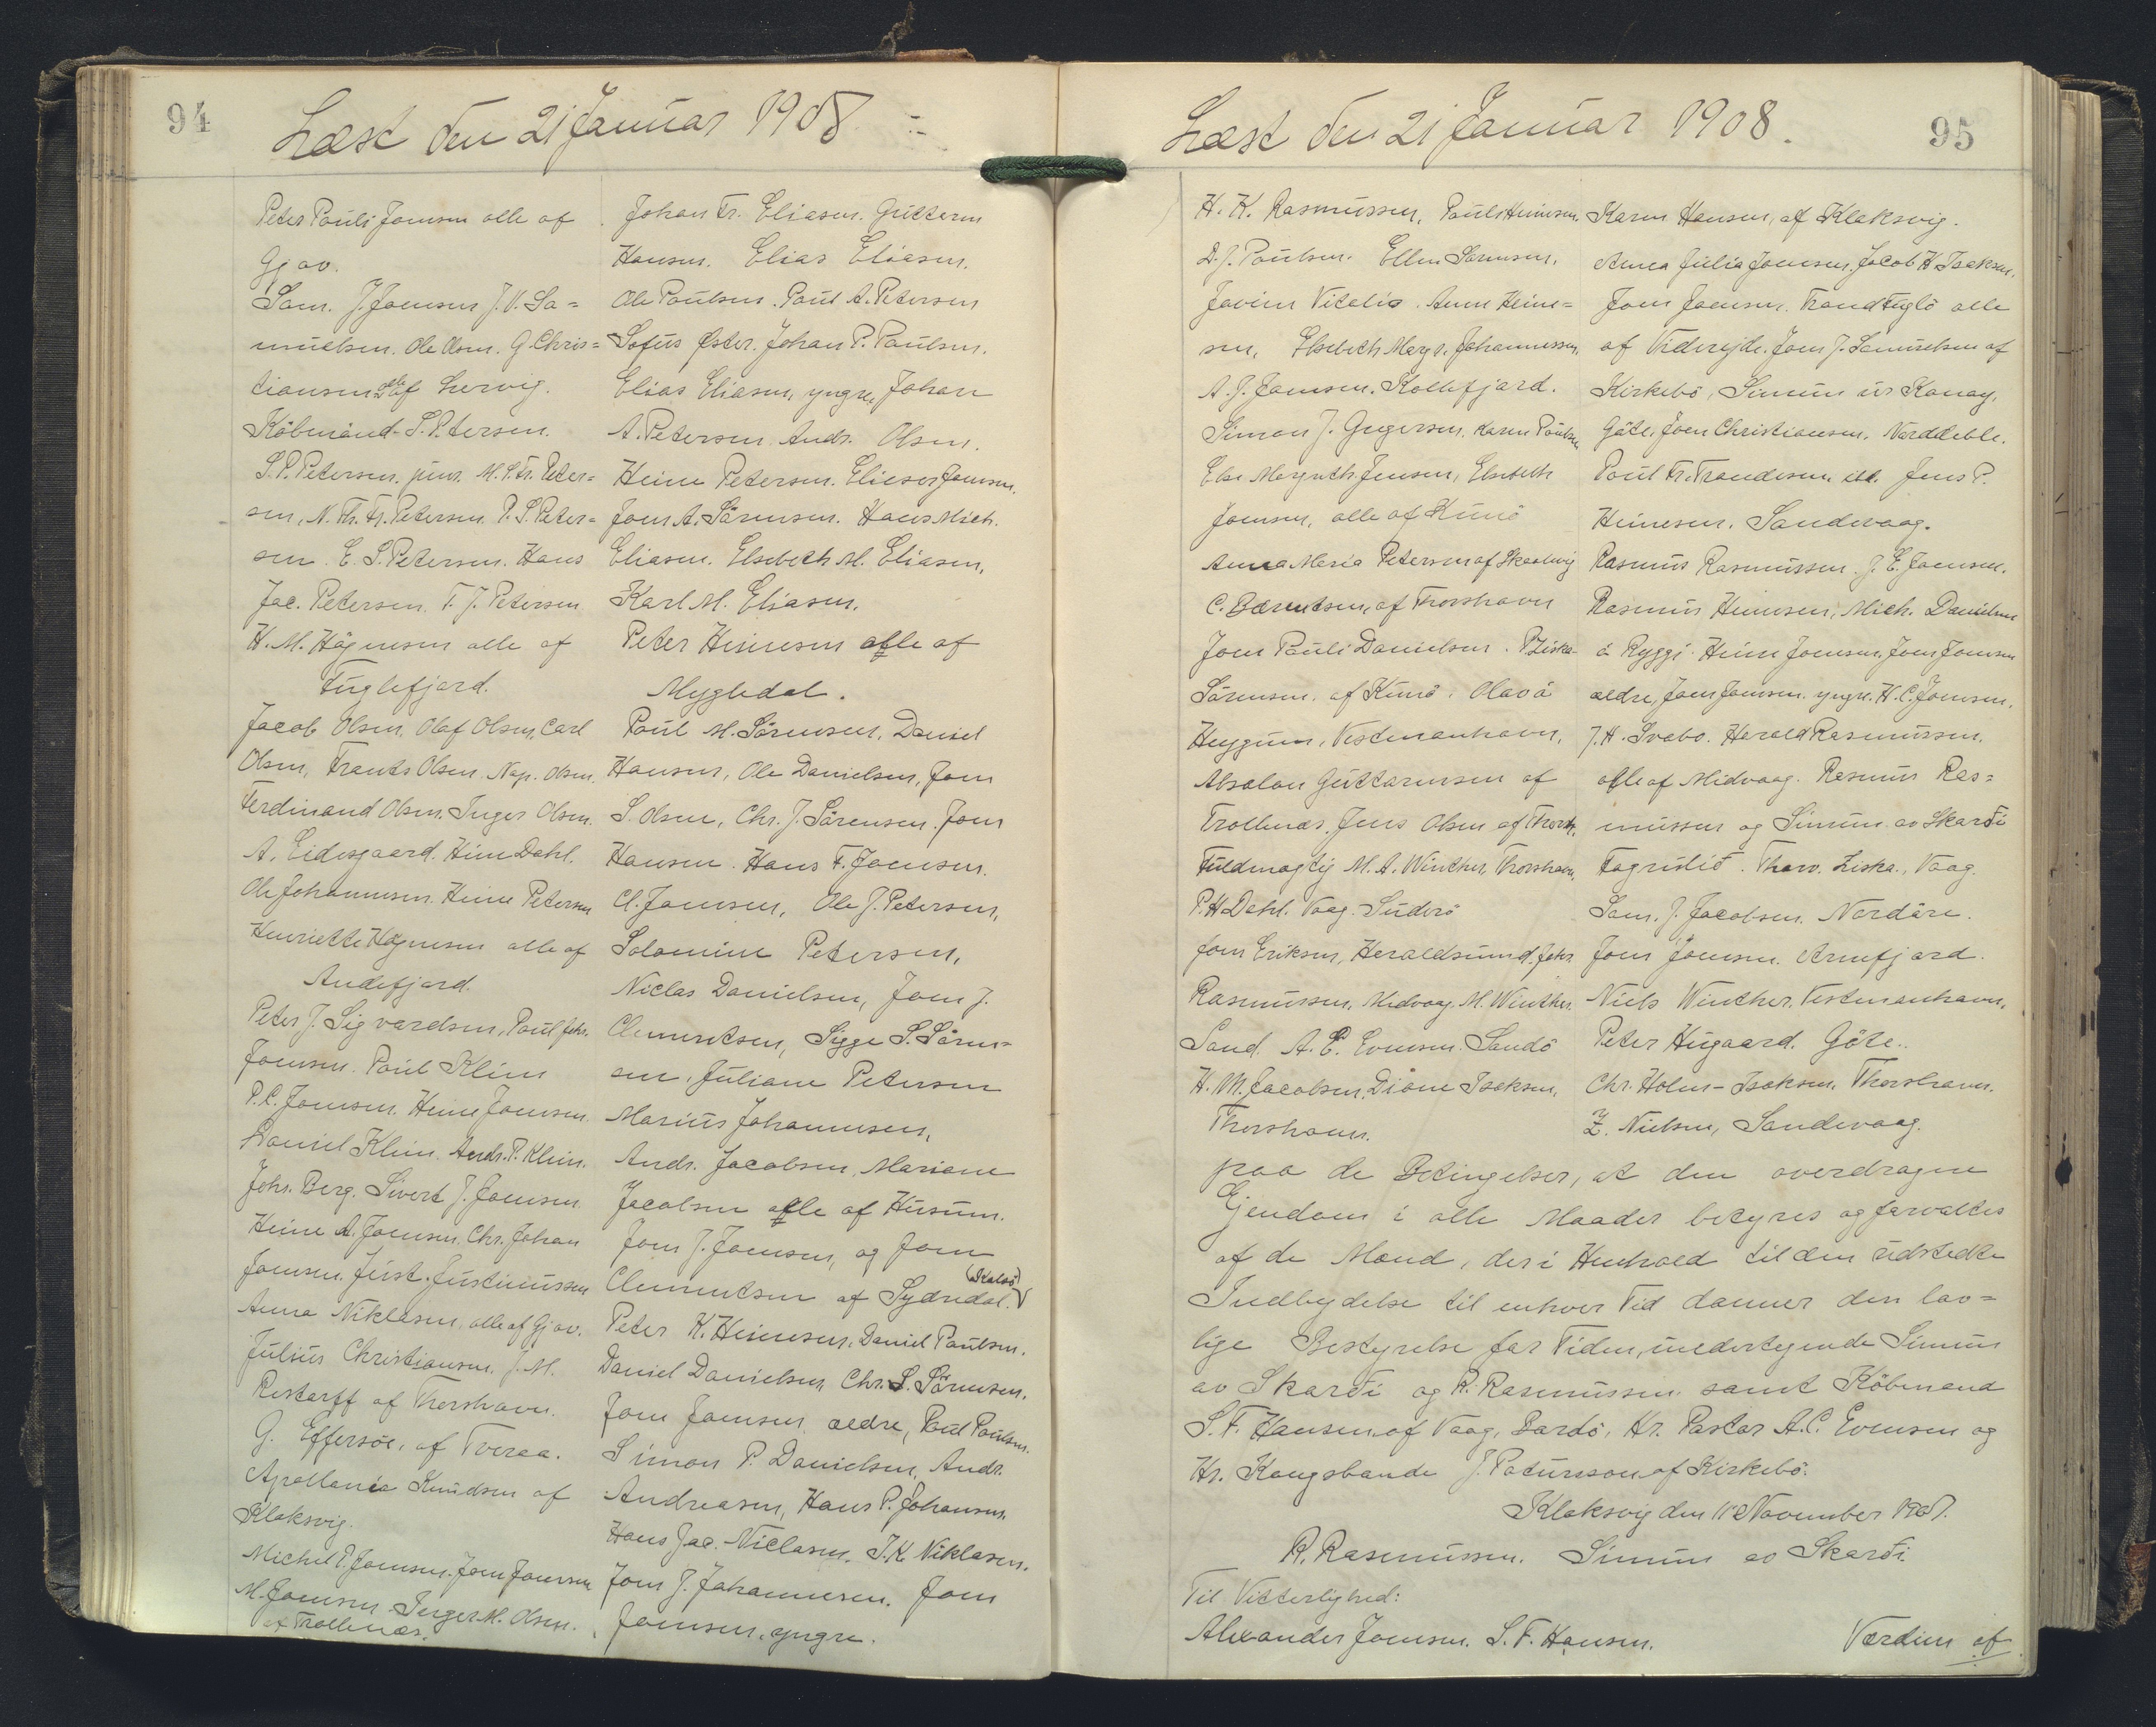 94
Læst den 21 Januar 1908
Peter Pauli Joensen alle af
Gjov.
Sam. J. Joensen J. V. Sa=
muelsen. Ole Olsen. G. Chris=
tiansen alle af Lervig.
Köbmand S. P. Petersen.
S. P. Petersen, junr. M. S. Fr. Peter=
sen, N. Th. Fr. Petersen P. S. Peter=
sen. E. S. Petersen. Hans
Jac. Petersen. T. J. Petersen
H. M. Högnesen alle af
Fuglefjord.
Jacob Olsen, Olaf Olsen, Carl
Olsen, Frants Olsen. Nap. Olsen.
Ferdinand Olsen. Inger Olsen.
A. Eidesgaard. Heine Dahl.
Ole Johannesen. Heine Petersen
Henriette Högnesen alle af
Andefjord.
Peter J. Sigvardsen, Poul Johs.
Joensen. Poul Klein
P. C. Joensen. Heine Joensen.
Daniel Klein. Andr. P. Klein.
Johs. Berg. Sivert J. Joensen
Heine A. Joensen. Chr. Johan
Joensen. Just. Justinussen
Anna Niklasen, alle af Gjov.
Julius Christiansen. J. M.
Restorff af Thorshavn.
G. Effersöe, af Tveraa.
Apollonia Knudsen af
Klaksvig.
Michel P. Joensen. Joen Joensen
M. Joensen Inger M. Olsen.
af Trollenæs.
Johan Fr. Eliasen. Guttorm
Hansen. Elias Eliasen.
Ole Poulsen. Poul A. Petersen
Sofus Öster. Johan P. Poulsen.
Elias Eliasen, yngre, Johan
A. Petersen Andr. Olsen.
Heine Petersen. Elieser Joensen.
Joen A. Sörensen. Hans Mich.
Eliasen. Elsebeth M. Eliasen,
Karl M. Eliasen.
Peter Heinesen alle af
Mygledal.
Poul M. Sörensen, Daniel
Hansen, Ole Danielsen, Joen
S. Olsen, Chr. J. Sörensen. Joen
Hansen. Hans F. Joensen.
Cl. Joensen, Ole J. Petersen,
Solomine Petersen,
Niclas Danielsen, Joen J.
Clementsen, Sigge S. Sören=
sen, Juliane Petersen
Marius Johannesen,
Andr. Jacobsen, Mariane
Jacobsen alle af Husum.
Joen J. Joensen, og Joen
Clementsen af Sydredal. (Kalsö)
Peter K. Heinesen, Daniel Poulsen.
Daniel Danielsen, Chr. S. Sörensen.
Joen Joensen ældre, Poul Poulsen.
Simon P. Danielsen, Andr.
Andreasen, Hans P. Johansen.
Hans Jac. Niclasen. J. K. Niklasen.
Joen J. Johannesen. Joen
Joensen, yngre.
Læst den 21 Januar 1908.
95
H. K. Rasmussen, Pauli Heinesen.
D. J. Poulsen. Ellen Sörensen,
Javine Vitalis. Anne Heine=
sen, Elsebeth Margr. Johannessen,
A. J. Joensen, Kollefjord.
Simon J. Gregersen, Karen Poulsen
Else Margreth Jensen, Elsebeth
Joensen, alle af Kunö
Anna Maria Petersen af Skaalevig
C. Bærentsen, af Thorshavn
Joen Pauli Danielsen. P. Ziska
Sörensen. af Kunö. Olav á
Heygum, Vestmanhavn,
Absalon Guttormsen af
Trollenæs, Jens Olsen af Thorsh.
Fuldmægtig M. A. Winther, Thorshavn,
P. H. Dahl. Vaag. Suderö
Joen Eriksen, Heraldsund. Johs.
Rasmussen, Midvaag. M. Winther.
Sand. A. C. Evensen. Sandö
H. M. Jacobsen, Diane Isaksen,
Thorshavn.
Karen Hansen, af Klaksvig.
Anna Julia Joensen, Jacob H. Isaksen,
Joen Joensen. Trond Fuglö alle
af Viderejde. Joen J. Samuelsen af
Kirkebö, Simun úr Konoy,
Göte, Joen Christiansen, Norddeble.
Poul Fr. Trondesen ibd. Jens P.
Heinesen. Sandevaag.
Rasmus Rasmussen. J. E. Joensen.
Rasmus Heinesen, Mich. Danielsen
á Ryggi. Heine Joensen, Joen Joensen
ældre, Joen Joensen. yngre. H. C. Joensen,
J. H. Svabo. Harald Rasmussen.
alle af Midvaag. Rasmus Ras=
mussen og Simun av Skarði
Fagralid. Thorv. Ziska, Vaag.
Sam. J. Jacobsen. Nordöre.
Joen Joensen. Arnefjord.
Niels Winther. Vestmanhavn,
Peter Hugaard. Göte.
Chr. Holm-Isaksen. Thorshavn.
Z. Nielsen, Sandevaag.
paa de Betingelser, at den overdragne
Ejendom i alle Maader bestyres og forvaltes
af de Mænd, der i Henhold til den udstedte
Indbydelse til enhver Tid danner den lov=
lige Bestyrelse for Tiden, undertegnede Simun
av Skarði og R. Rasmussen samt Köbmand
S. F. Hansen, af Vaag, Bordö, Hr. Pastor A. C. Evensen og
Hr. Kongsbonde J. Patursson af Kirkebö.
Klaksvig den 11 November 1907.
R. Rasmussen. Simun av Skarði.
Til Vitterlighed:
Alexander Joensen. S. F. Hansen.
Værdien af